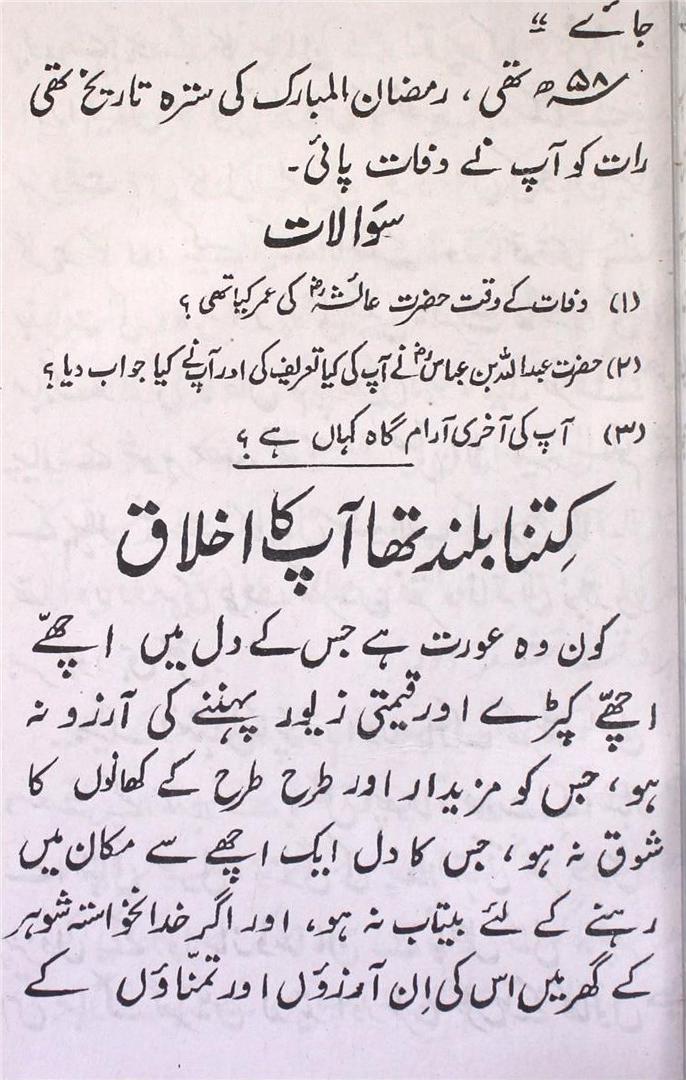 جائے "
۵۸ھ تھی ، رمضان المبارک کی سترہ تاریخ تھی
رات کو آپ نے وفات پائی۔
سوالات
(۱) وفات کے وقت حضرت عائشہؓ کی عمر کیا تھی ؟
(۲) حضرت عبداللہ بن عباسؓ نے آپ کی کیا تعریف کی اور آپ نے کیا جواب دیا ؟
(۳) آپ کی آخری آرام گاہ کہاں ہے ؟
کِتنا بلند تھا آپ کا اخلاق
کون وہ عورت ہے جس کے دل میں اچھے
اچھے کپڑے اور قیمتی زیور پہننے کی آرزو نہ
ہو ، جس کو مزیدار اور طرح طرح کے کھانوں کا
شوق نہ ہو ، جس کا دل ایک اچھے سے مکان میں
رہنے کے لئے بیتاب نہ ہو ، اور اگر خدانخواستہ شوہر
کے گھر میں اس کی اِن آرزوؤں اور تمنّاؤں کے